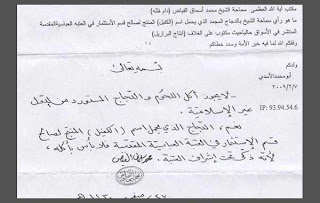 مكتب آية الله العظمى سماحة الشيخ محمد أسحاق الفياض (دام ظله)
ما هو رأي سماحة الشيخ بالدجاج المجمد الذي يحمل اسم (الكفيل) المنتج لصالح قسم الاستثمار في العتبه العباسيةالمقدسة
المنتشر في الأسواق حاليا حيث مكتوب على الغلاف (انتاج البرازيل)
وفقكم الله لما فيه خير الأمة وسدد خطاكم
ولدكم
أبو محمد الأسدي
٢٠٠٩/٢/٧
IP: 93.94.54.6
بسمه تعالى
لا يجوز أكل اللحوم والدجاج المستورد من الدول
غير الإسلامية.
نعم، الدجاج الذي يحمل اسم (الكفيل) المنتج لصالح
قسم الاستثمار في العتبة العباسية المقدسة فلا بأس بأكله،
لأنه ذكي تحت إشراف العتبة.
صفر ١٤٣٠